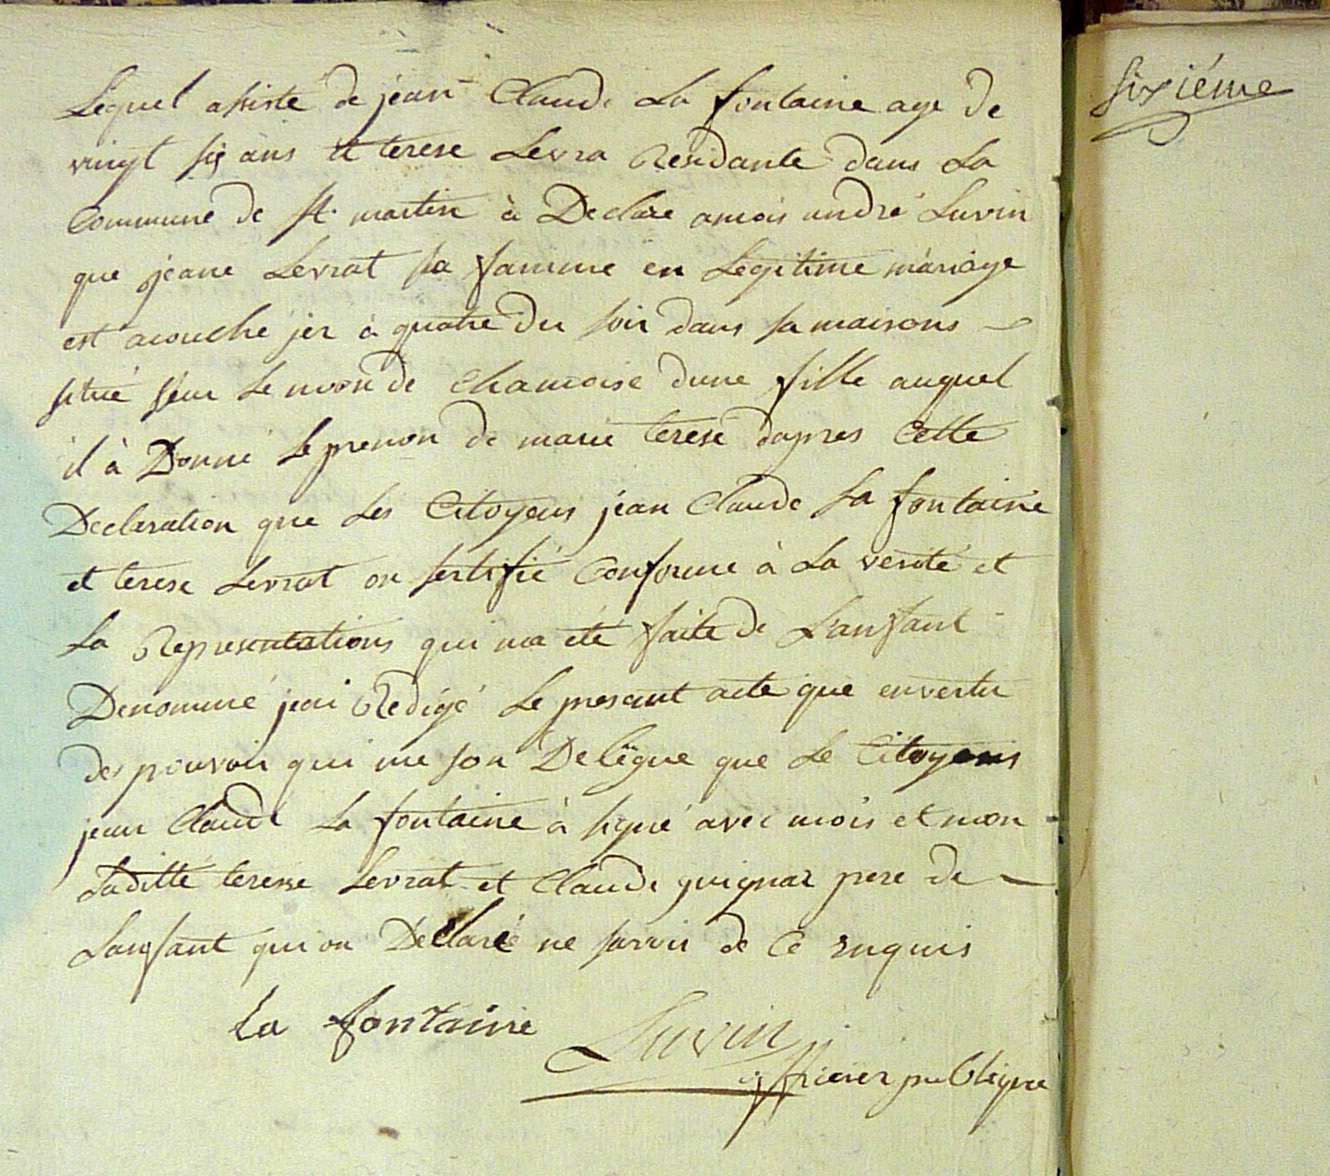 Lequel assisté de jean Claude La fontaine age de
vingt six ans et terese Levra Residante dans La
Commune de st. martin à Declare amois andré Luvin
que jeane Levrat sa famme en Legitime mariage
est acouché jer à quatre du soir dans sa maisons
situé seur Le mon de chamoise dune fille auquel
il à Donné Le prenon de marie terese dapres Cette
Declaration que Les Citoyens jean Claude La fontaine
et terese Levrat on sertifié Conforme à La verité et
La Representations qui ma eté faite de L'anfant
Denommé jeai Redigé Le presant acte que envertu
des pouvoir qui me son Delégue que Le Citoyens
jean Claude La fontaine à signé avec mois et mon
Laditte terese Levrat et Claude guignar pere de
Lanfant qui on Déclaré ne savoir de Ce enquis
La fontaine Luvin
officier publique
sixiéme